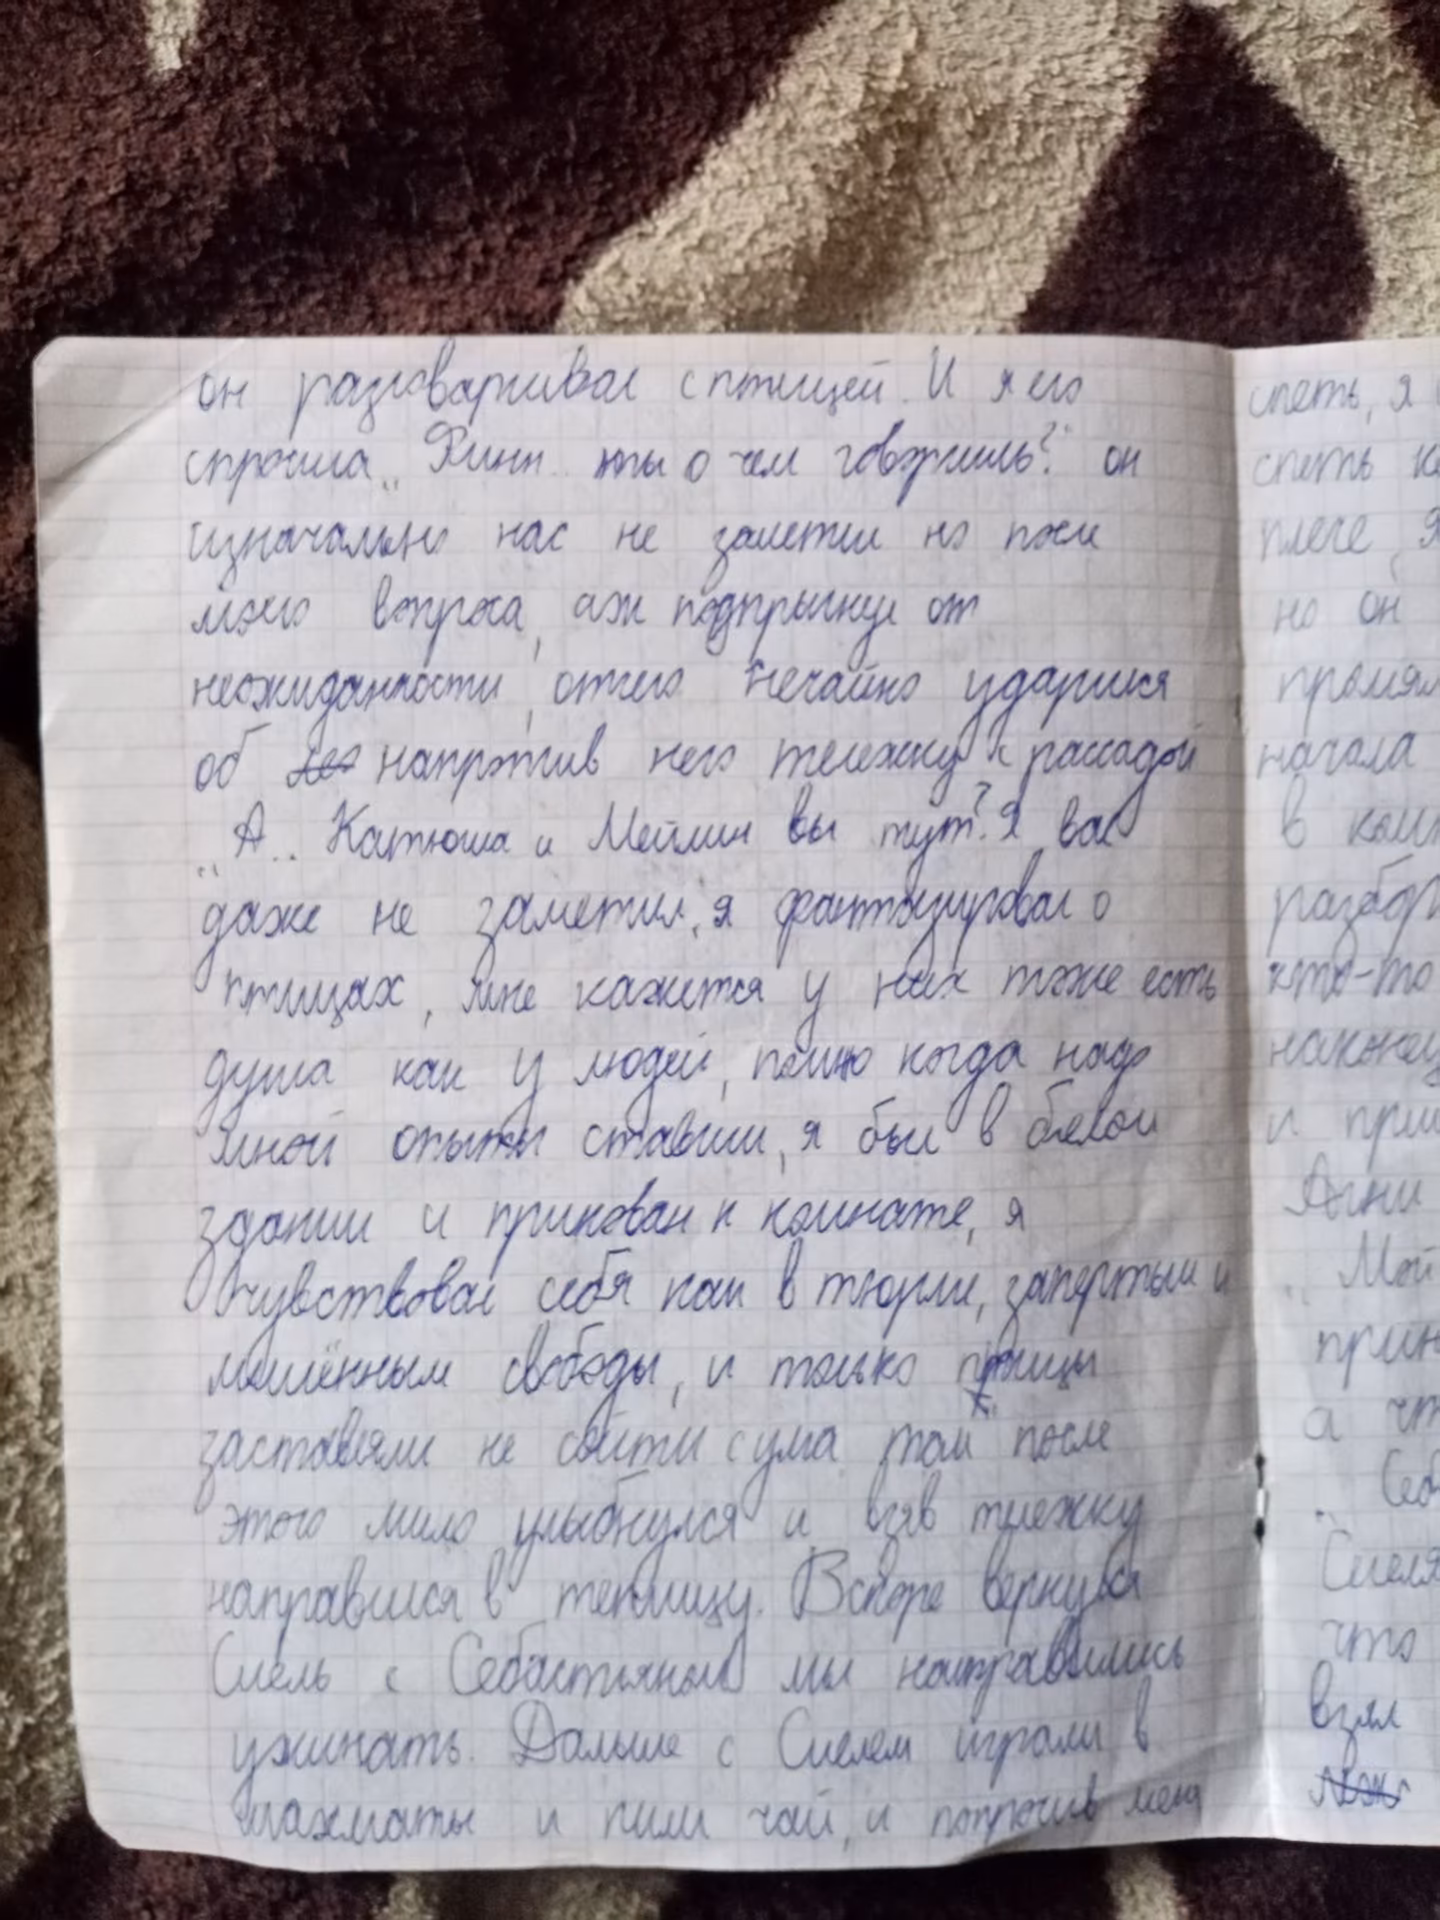 он разговаривал с птицей. И я его
спросила „Финн ты о чем говоришь?" он
изначально нас не заметил но после
моего вопроса, аж подпрыгнул от
неожиданности, отчего нечайно ударился
об напротив него тележку с рассадой
„А.. Катюша и Мейлин вы тут? Я вас
даже не заметил, я фантазировал о
птицах, мне кажется у них тоже есть
душа как у людей, помню когда надо
мной опыты ставили, я был в белом
здании и прикован к комнате, я
чувствовал себя как в тюрьме, запертым и
лишённым свободы, и только птицы
заставляли не сойти с ума после
этого мило улыбнулся и взяв тележку
направился в теплицу. Вскоре вернулся
Сиель с Себастьяном мы направились
ужинать. Дальше с Сиелем играли в
шахматы и пили чай, и попросив меня
спеть, я
спеть
плече, я
но он
начала
в
кто-то
и
Агни
„Мой
а
Сиеля
что
взял